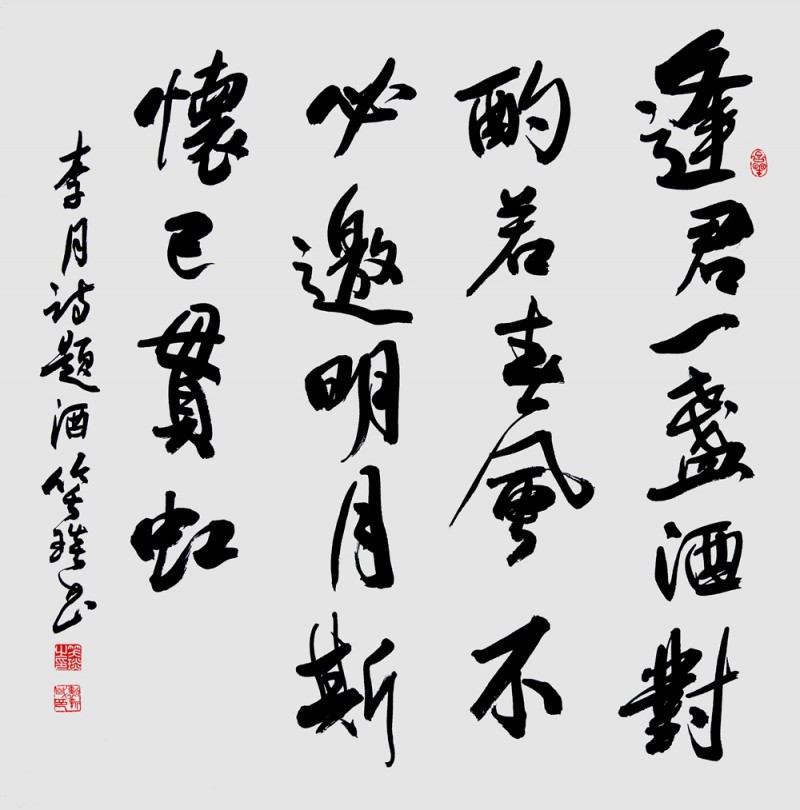 逢君一盏酒對
酌若春風不
必邀明月斯
懷已貫虹
李月诗題酒笑璞书